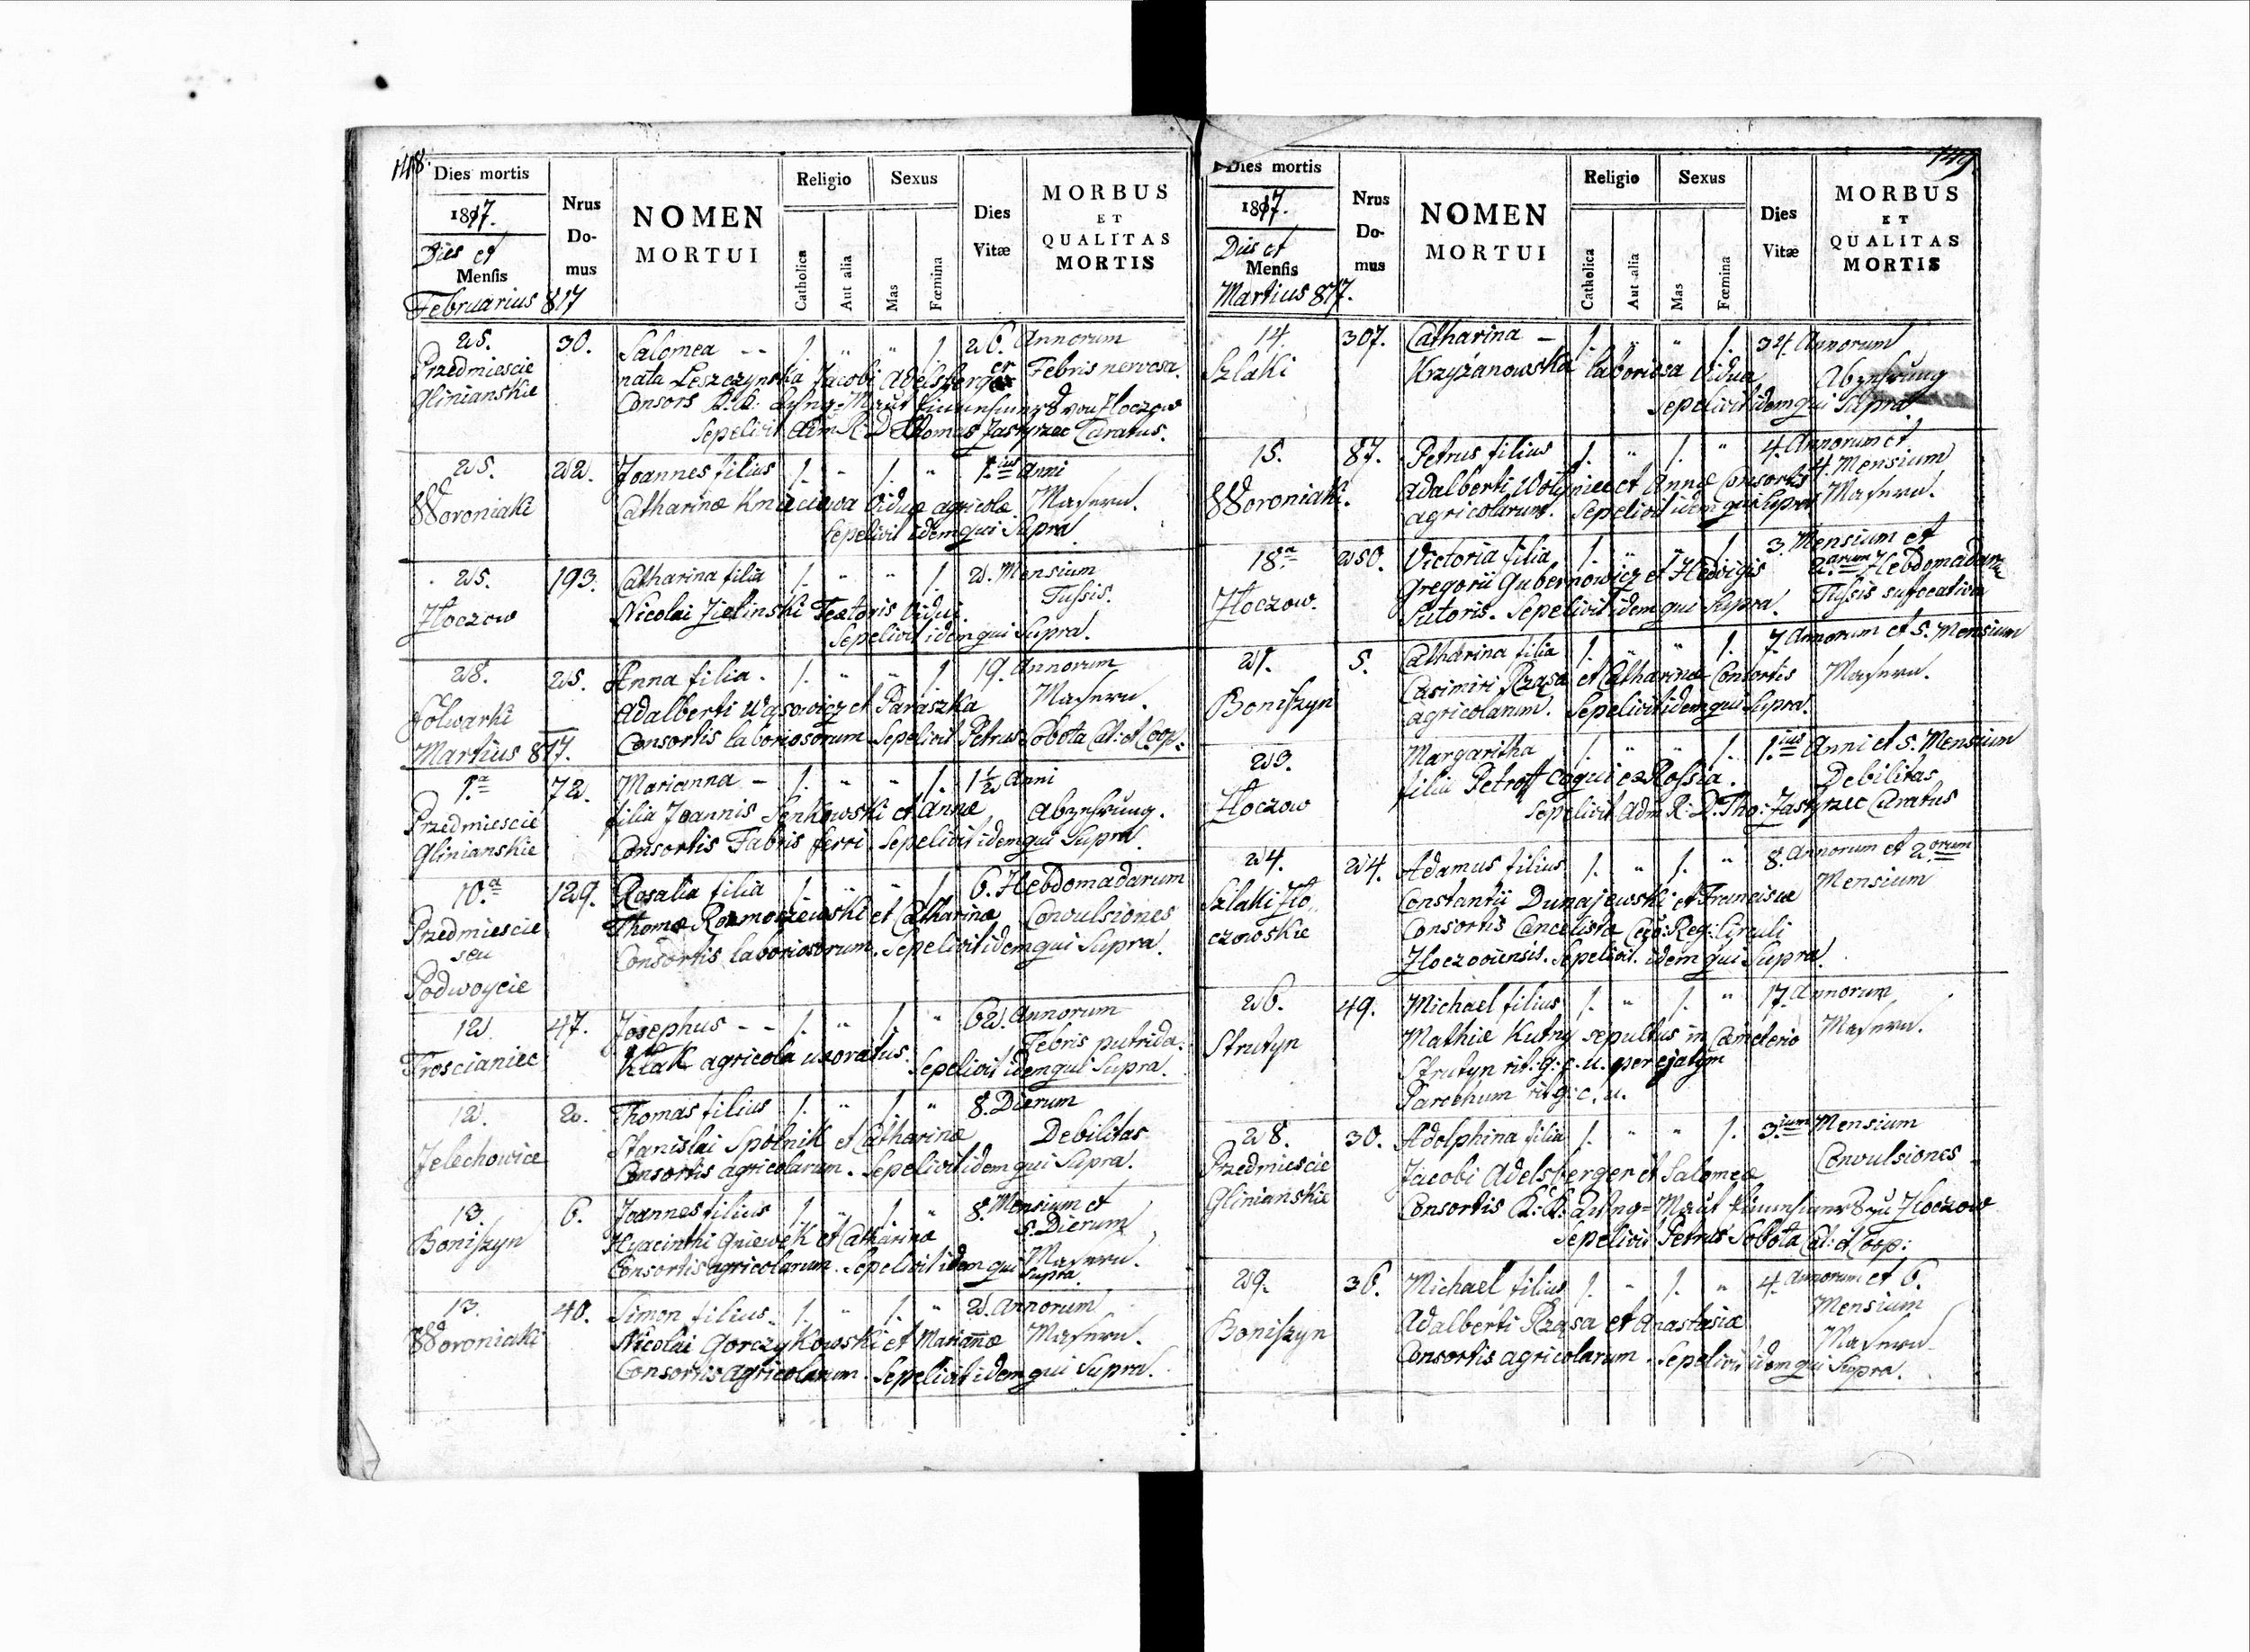 148.
Dies mortis
1817.
Dies et
Mensis
Februarius 817
Nrus
Do-
mus
NOMEN
MORTUI
Religio
Catholica
Aut alia
Sexus
Mas
Fœmina
Dies
Vitæ
MORBUS
ET
QUALITAS
MORTIS
25. 30. Salomea -- 1. " " 1 26. Annorum
Przedmiescie nata Leszczynska Jacobi Adelsberger Febris nervosa.
Glinianskie Consors K:K: Maut von Złoczow
Sepelivit Adm R: D Thomas Jastrzec Curatus.
25. 22. Joannes filius 1. " 1. " 1.ius Anni
Woroniaki Catharinæ Kmieciowa Viduæ agricolæ Masern.
Sepelivit idem qui Supra
25. 193. Catharina filia 1. " " 1. 2. Mensium
Złoczow Nicolai Zielinski Textoris Vidui. Tussis.
Sepelivit idem qui Supra.
28. 25. Anna filia. 1. " " 1 19. Annorum
Folwarki Adalberti Wąsowicz et Paraszka Masern.
Consortis laboriosorum Sepelivit Petrus Sobota Cat: et Coop.
Martius 817.
1.a 72. Marianna - 1. " " 1. 1½ Anni
Przedmiescie filia Joannis Senkowski et Annæ Abzehrung.
Glinianskie Consortis Fabris ferri. Sepelivit idem qui Supra.
10.a 129. Rosalia filia 1. " " 1 6. Hebdomadarum
Przedmiescie Thomæ et Catharinæ Convulsiones
seu Consortis laboriosorum. Sepelivit idem qui Supra.
Podwoycie
12 47. Josephus -- 1. " 1. " 62. Annorum
Troscianiec Kłak agricola uxoratus. Febris putrida.
Sepelivit idem qui Supra.
12. 2. Thomas filius 1. " 1 " 8. Dierum
Jelechowice Stanislai Spolnik et Catharinæ Debilitas
Consortis agricolarum. Sepelivit idem qui Supra.
13. 6. Joannes filius 1. " 1. " 8. Mensium et
5. Dierum
Boniszyn Hyacinthi Gniewek et Catharinæ Masern.
Consortis agricolarum. Sepelivit idem qui Supra
13. 40. Simon filius. 1. " 1. " 2. Annorum
Woroniaki Nicolai Gorczykowski et Mariañæ Masern.
Consortis agricolarum. Sepelivit idem qui Supra.
149.
Dies mortis
1817.
Dies et
Mensis
Martius 817.
Nrus
Do-
mus
NOMEN
MORTUI
Religio
Catholica
Aut alia
Sexus
Mas
Fœmina
Dies
Vitæ
MORBUS
ET
QUALITAS
MORTIS
14. 307. Catharina - 1. " " 1. 34. Annorum
Szlaki Krzyżanowska laboriosa Vidua Abzehrung
Sepelivit idem qui Supra
15. 87. Petrus filius 1. " 1. " 4. Annorum et
4. Mensium
Woroniaki. Adalberti Wołyniec et Annæ Consortis Masern.
agricolarum. Sepelivit idem qui Supra
18.a 250. Victoria filia 1. " " 1 3. Mensium et
2.arum Hebdomadarum
Złoczow. Gregorii Gubernowicz et Hedvigis Tussis suffocativa
Sutoris. Sepelivit idem qui Supra.
21. 5. Catharina filia 1. " " 1. 7. Annorum et 5. Mensium
Boniszyn Casimiri Rząsa et Catharinæ Consortis Masern.
agricolarum. Sepelivit idem qui Supra.
23. Margaritha 1. " " 1. 1.ius Anni et 5. Mensium
Złoczow filia Petroff Coqui ex Rossia. Debilitas
Sepelivit Adm R: D: Tho: Jastrzec Curatus
24. 24. Adamus filius 1. " 1. " 8. Annorum et 2.orum
Mensium
Szlaki Zło Constantii Dunajewski et Franciscæ
czowskie Consortis Cancelista Cæs: Reg: Circuli
Zloczoviensis. Sepelivit. idem qui Supra.
26. 49. Michael filius 1. " 1. " 17. Annorum
Strutyn Mathiæ Kutny sepultus in Cæmeterio Masern.
Strutyn rit: g: c. u. per ejatym
Parochum rit g: c. u.
28. 30. Adolphina filia 1. " " 1. 3.ium Mensium
Przedmiescie Jacobi Adelsberger et Salomeæ Convulsiones
Glinianskie Consortis K: K: Maut zu Złoczow
Sepelivit Petrus Sobota Cat: et Coop:
29. 36. Michael filius 1. " 1. " 4. Annorum et 6.
Mensium
Boniszyn Adalberti Rząsa et Anastasiæ Masern
Consortis agricolarum. Sepelivit idem qui Supra.